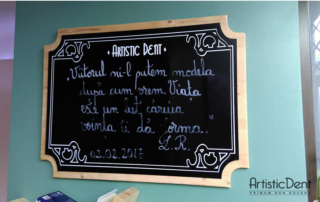 · Artistic Dent ·
„Viitorul ni-l putem modela
după cum vrem. Viața
este un aït căruia
voința îi dă forma."
L.R.
02.02.2017
ArtisticDent